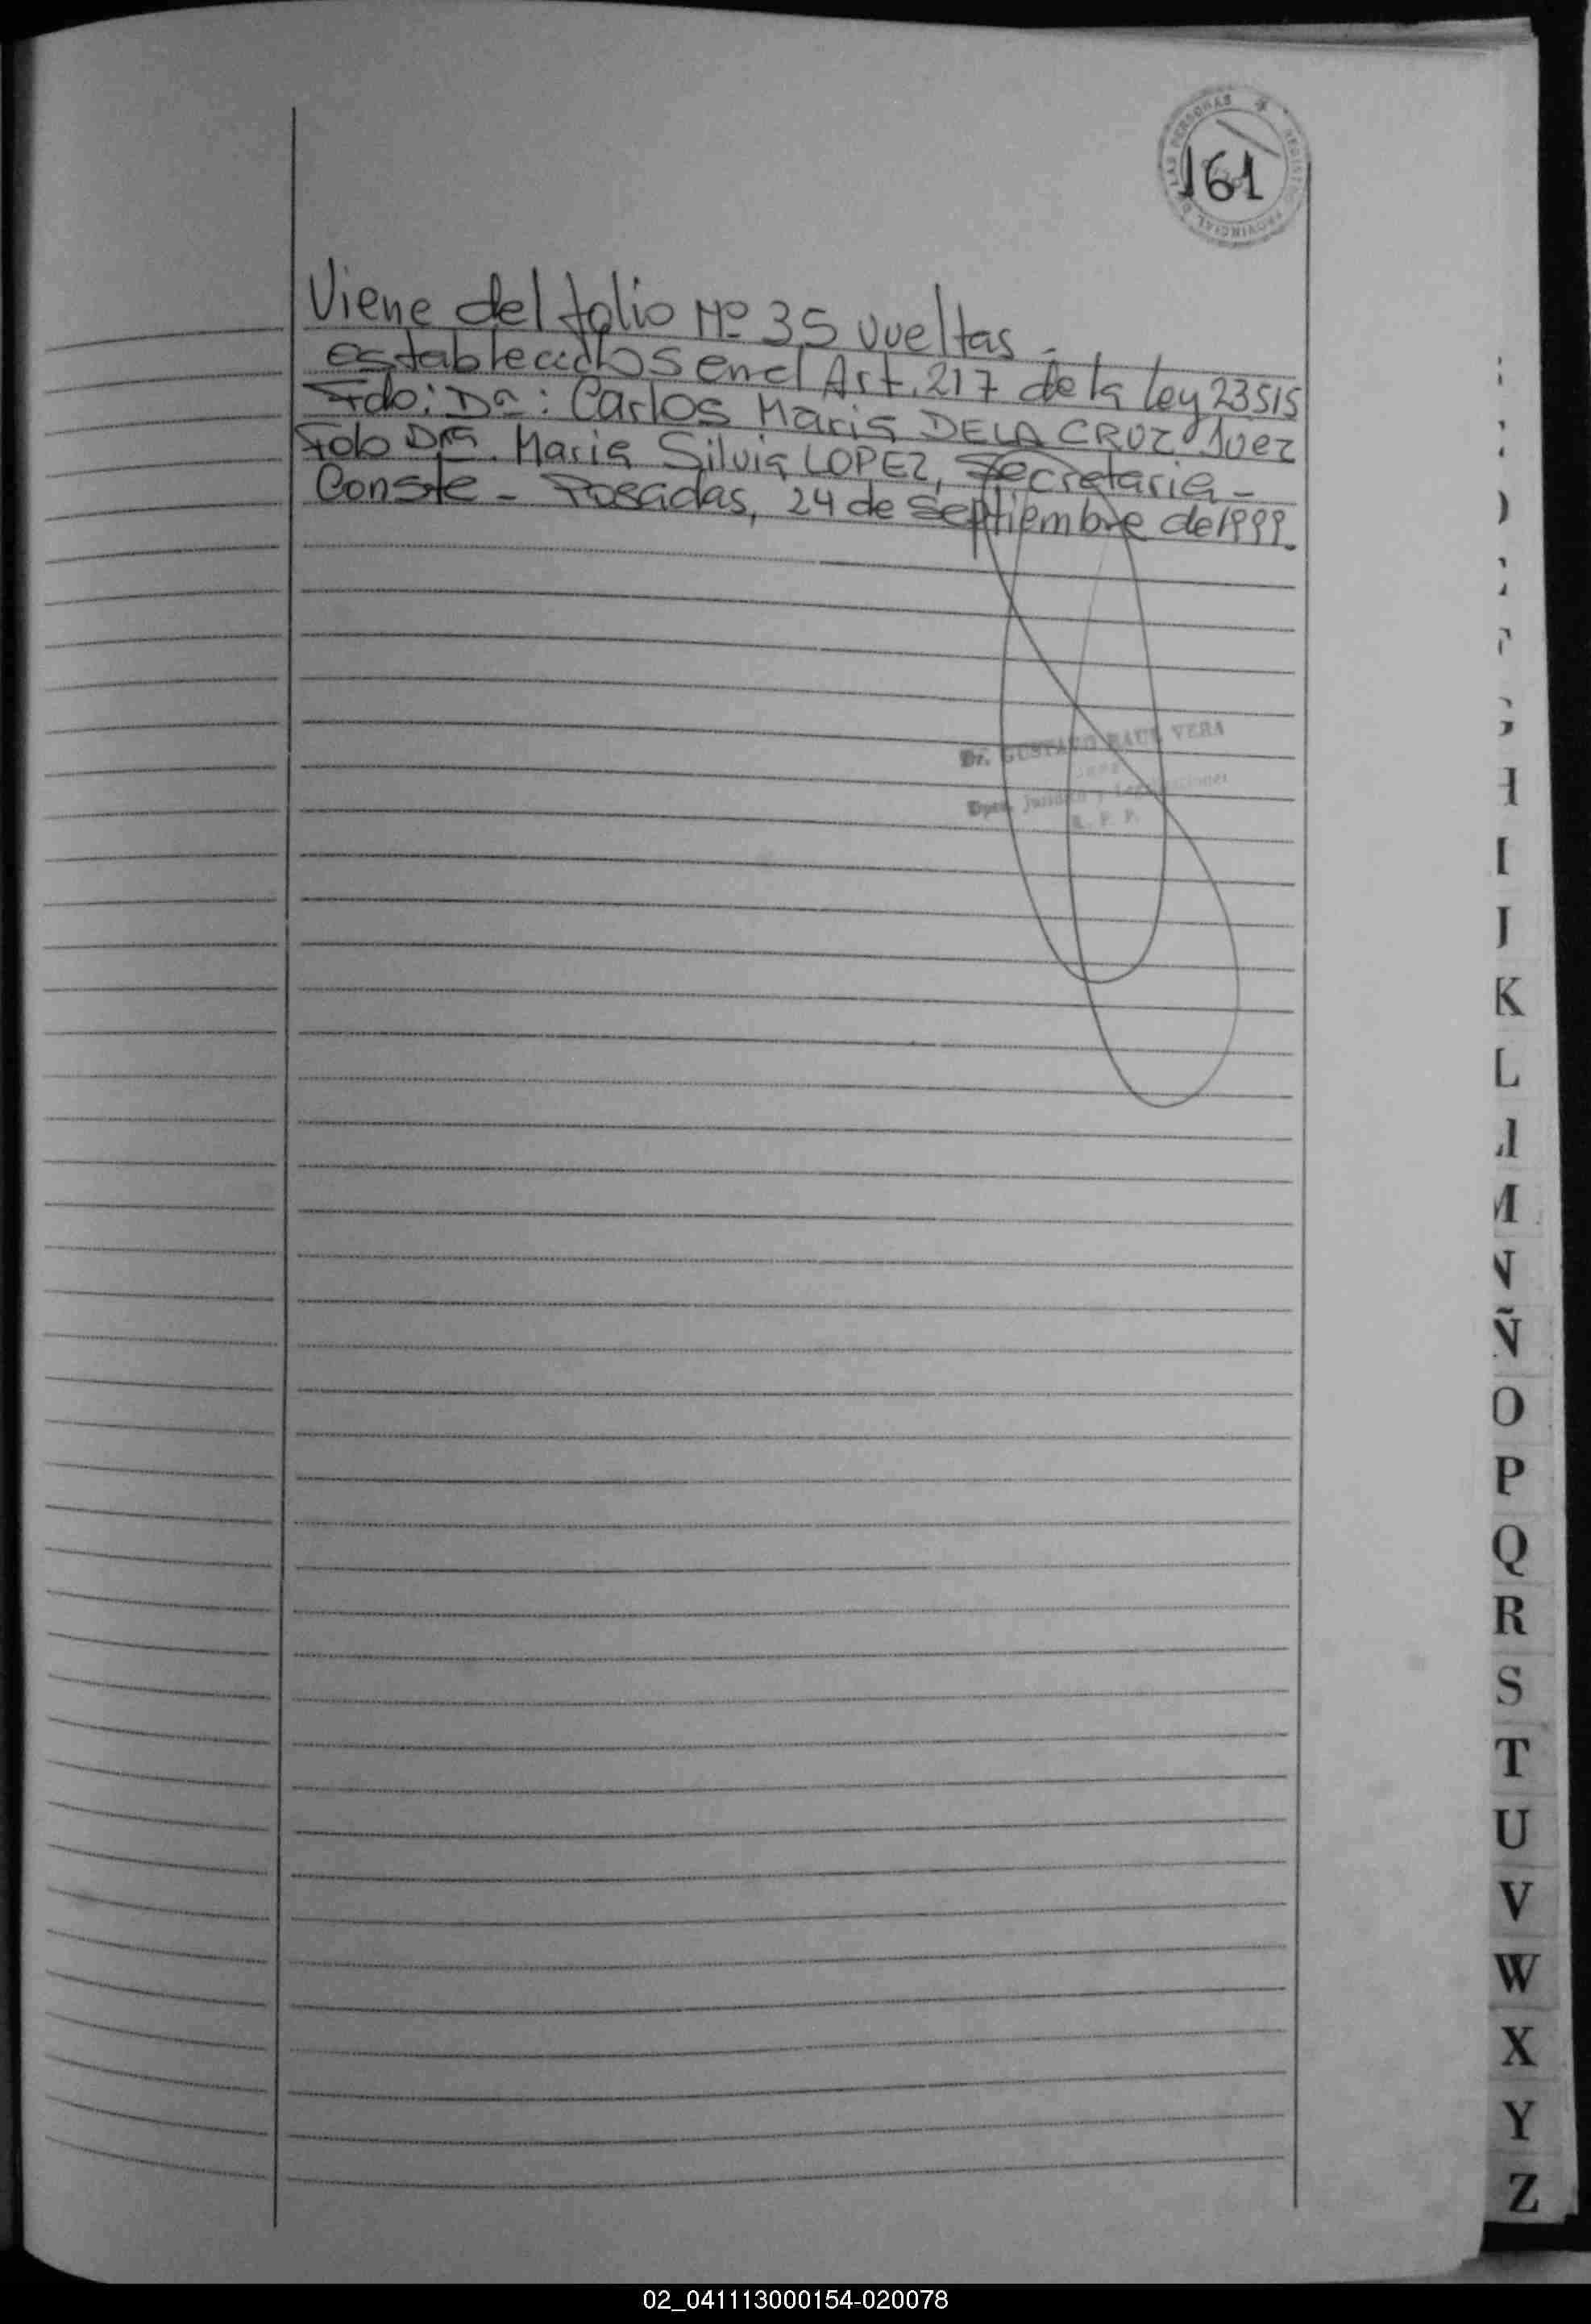 REGISTRO PROVINCIAL DE LAS PERSONAS
161
Viene del folio Nº 35 vueltas -
establecidos en el Art. 217 de la ley 23515
Fdo: Dr: Carlos Maria DE LA CRUZ Juez
Fdo Dra. Maria Silvia LOPEZ, Secretaria -
Conste - Posadas, 24 de Septiembre de 1999.
Dr. GUSTAVO RAUL VERA
Dpto. Jurídico y
R. P. P.
H
I
J
K
L
M
N
Ñ
O
P
Q
R
S
T
U
V
W
X
Y
Z
02_041113000154-020078